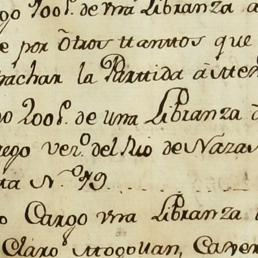 go 700p.s de vna Libranza a
e por otros ttanttos que
rachar la Parttida à Men
o 200p.s de una Libranza
ego ver.o del Rio de Naza
ta N.o 79
o Cargo vna Libranza
Claro.s Mogollan, Caver